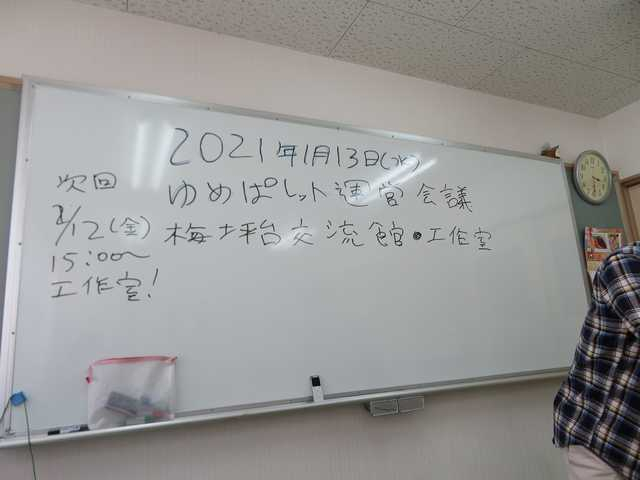 2021年1月13日(水)
ゆめぱレット運営会議
梅坪台交流館・工作室
次回
2/12(金)
15:00〜
工作室!